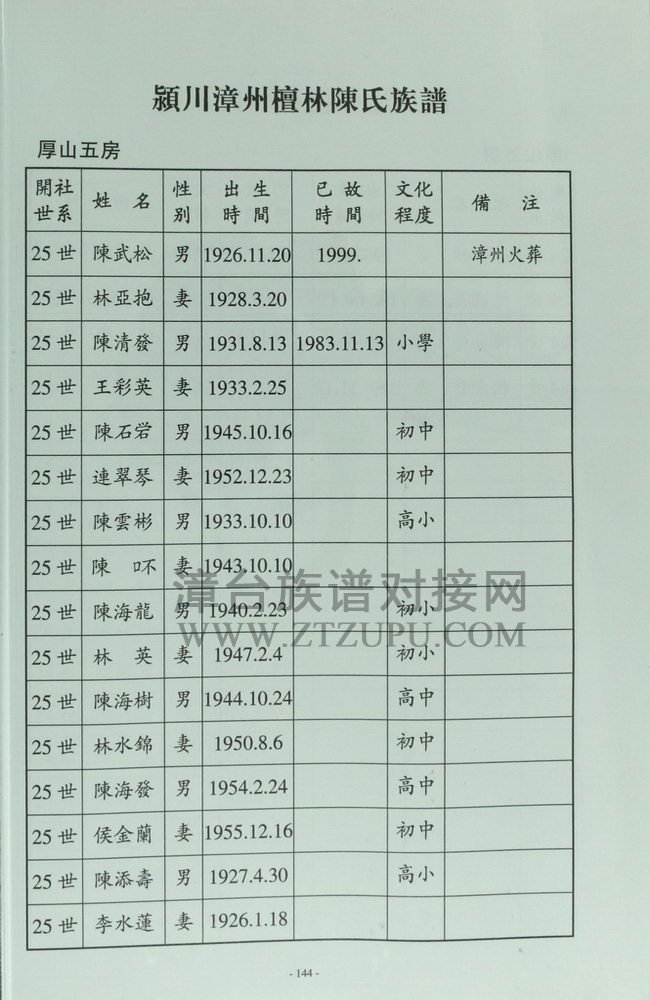 潁川漳州檀林陳氏族譜
厚山五房
開社世系 姓 名 性別 出生時間 已故時間 文化程度 備 注
25世 陳武松 男 1926.11.20 1999. 漳州火葬
25世 林亞抱 妻 1928.3.20
25世 陳清發 男 1931.8.13 1983.11.13 小學
25世 王彩英 妻 1933.2.25
25世 陳石岩 男 1945.10.16 初中
25世 連翠琴 妻 1952.12.23 初中
25世 陳雲彬 男 1933.10.10 高小
25世 陳 呅 妻 1943.10.10
25世 陳海龍 男 1940.2.23 初小
25世 林 英 妻 1947.2.4 初小
25世 陳海樹 男 1944.10.24 高中
25世 林水錦 妻 1950.8.6 初中
25世 陳海發 男 1954.2.24 高中
25世 侯金蘭 妻 1955.12.16 初中
25世 陳添壽 男 1927.4.30 高小
25世 李水蓮 妻 1926.1.18
漳台族谱对接网
WWW.ZTZUPU.COM
- 144 -